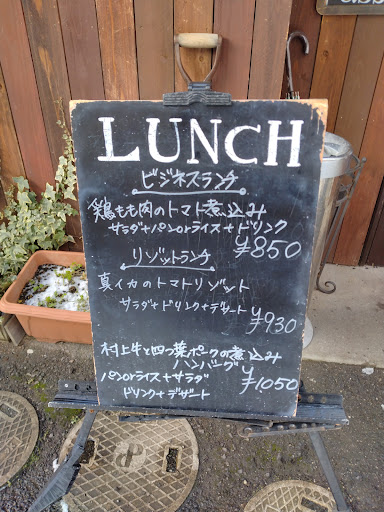 LUNCH
ビジネスランチ
鶏もも肉のトマト煮込み
サラダ+パンorライス+ドリンク
¥850
リゾットランチ
真イカのトマトリゾット
サラダ+ドリンク+デザート
¥930
村上牛と四つ葉ポークの煮込み
ハンバーグ
パンorライス+サラダ
ドリンク+デザート
¥1050